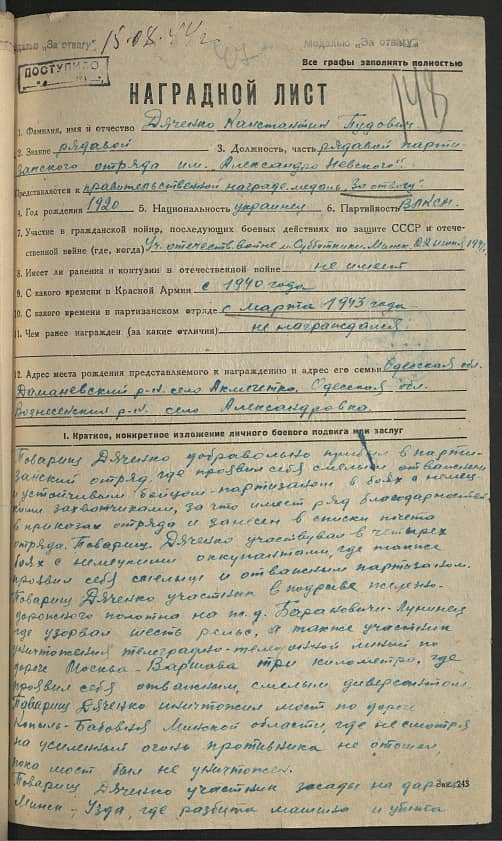 Медалью „За отвагу" 15.08.44г Медалью „За отвагу"
Все графы заполнять полностью
ПОСТУПИЛО
148
НАГРАДНОЙ ЛИСТ
1. Фамилия, имя и отчество Дяченко Канстантин Пудович
2. Звание рядавой 3. Должность, часть рядавой парти-
занского отряда им. Александра Невского"
Представляется к правительственной награде медаль „За отвагу"
4. Год рождения 1920 5. Национальность украинец 6. Партийность ВЛКСМ.
7. Участие в гражданской войне, последующих боевых действиях по защите СССР и отече-
ственной войне (где, когда) Уч. отечеств. войне м. Субботники Минск. 22 июня 1941
8. Имеет ли ранения и контузии в отечественной войне не имеет
9. С какого времени в Красной Армии с 1940 года
10. С какого времени в партизанском отряде с марта 1943 года
11. Чем ранее награжден (за какие отличия) не награждался
12. Адрес места рождения представляемого к награждению и адрес его семьи Одеская обл.
Даманевский р-н. село Акмечетка, Одеская обл.
Вознесенский р-н. село Александровка.
I. Краткое, конкретное изложение личного боевого подвига или заслуг
Товарищ Дяченко добравольно прибыл в парти-
занский отряд, где проявил себя смелым отважным
и устойчивым бойцом-партизаном в боях с немец-
кими захватчиками, за что имеет ряд благодарностей
в приказах отряда и занесен в списки почета
отряда. Товарищ Дяченко участвувал в четырех
боях с немецкими оккупантами, где также
проявил себя смелым и отважным партизаном.
Товарищ Дяченко участник в подрыве железно-
дорожного полотна на ж.д. Барановичи-Лунинец
где узорвал шесть рельс, а также участник
уничтожения телеграфно-телефонной линий по
дороге Москва-Варшава три километра, где
проявил себя отважным, смелым диверсантом
Товарищ Дяченко уничтожил мост по дороге
Копыль-Бабовня Минской области, где несмотря
на усиленный огонь противника не отошел,
пока мост был не уничтожен.
Товарищ Дяченко участник засады на дороге
Минск-Узда, где разбита машина и убито
Зак. 243